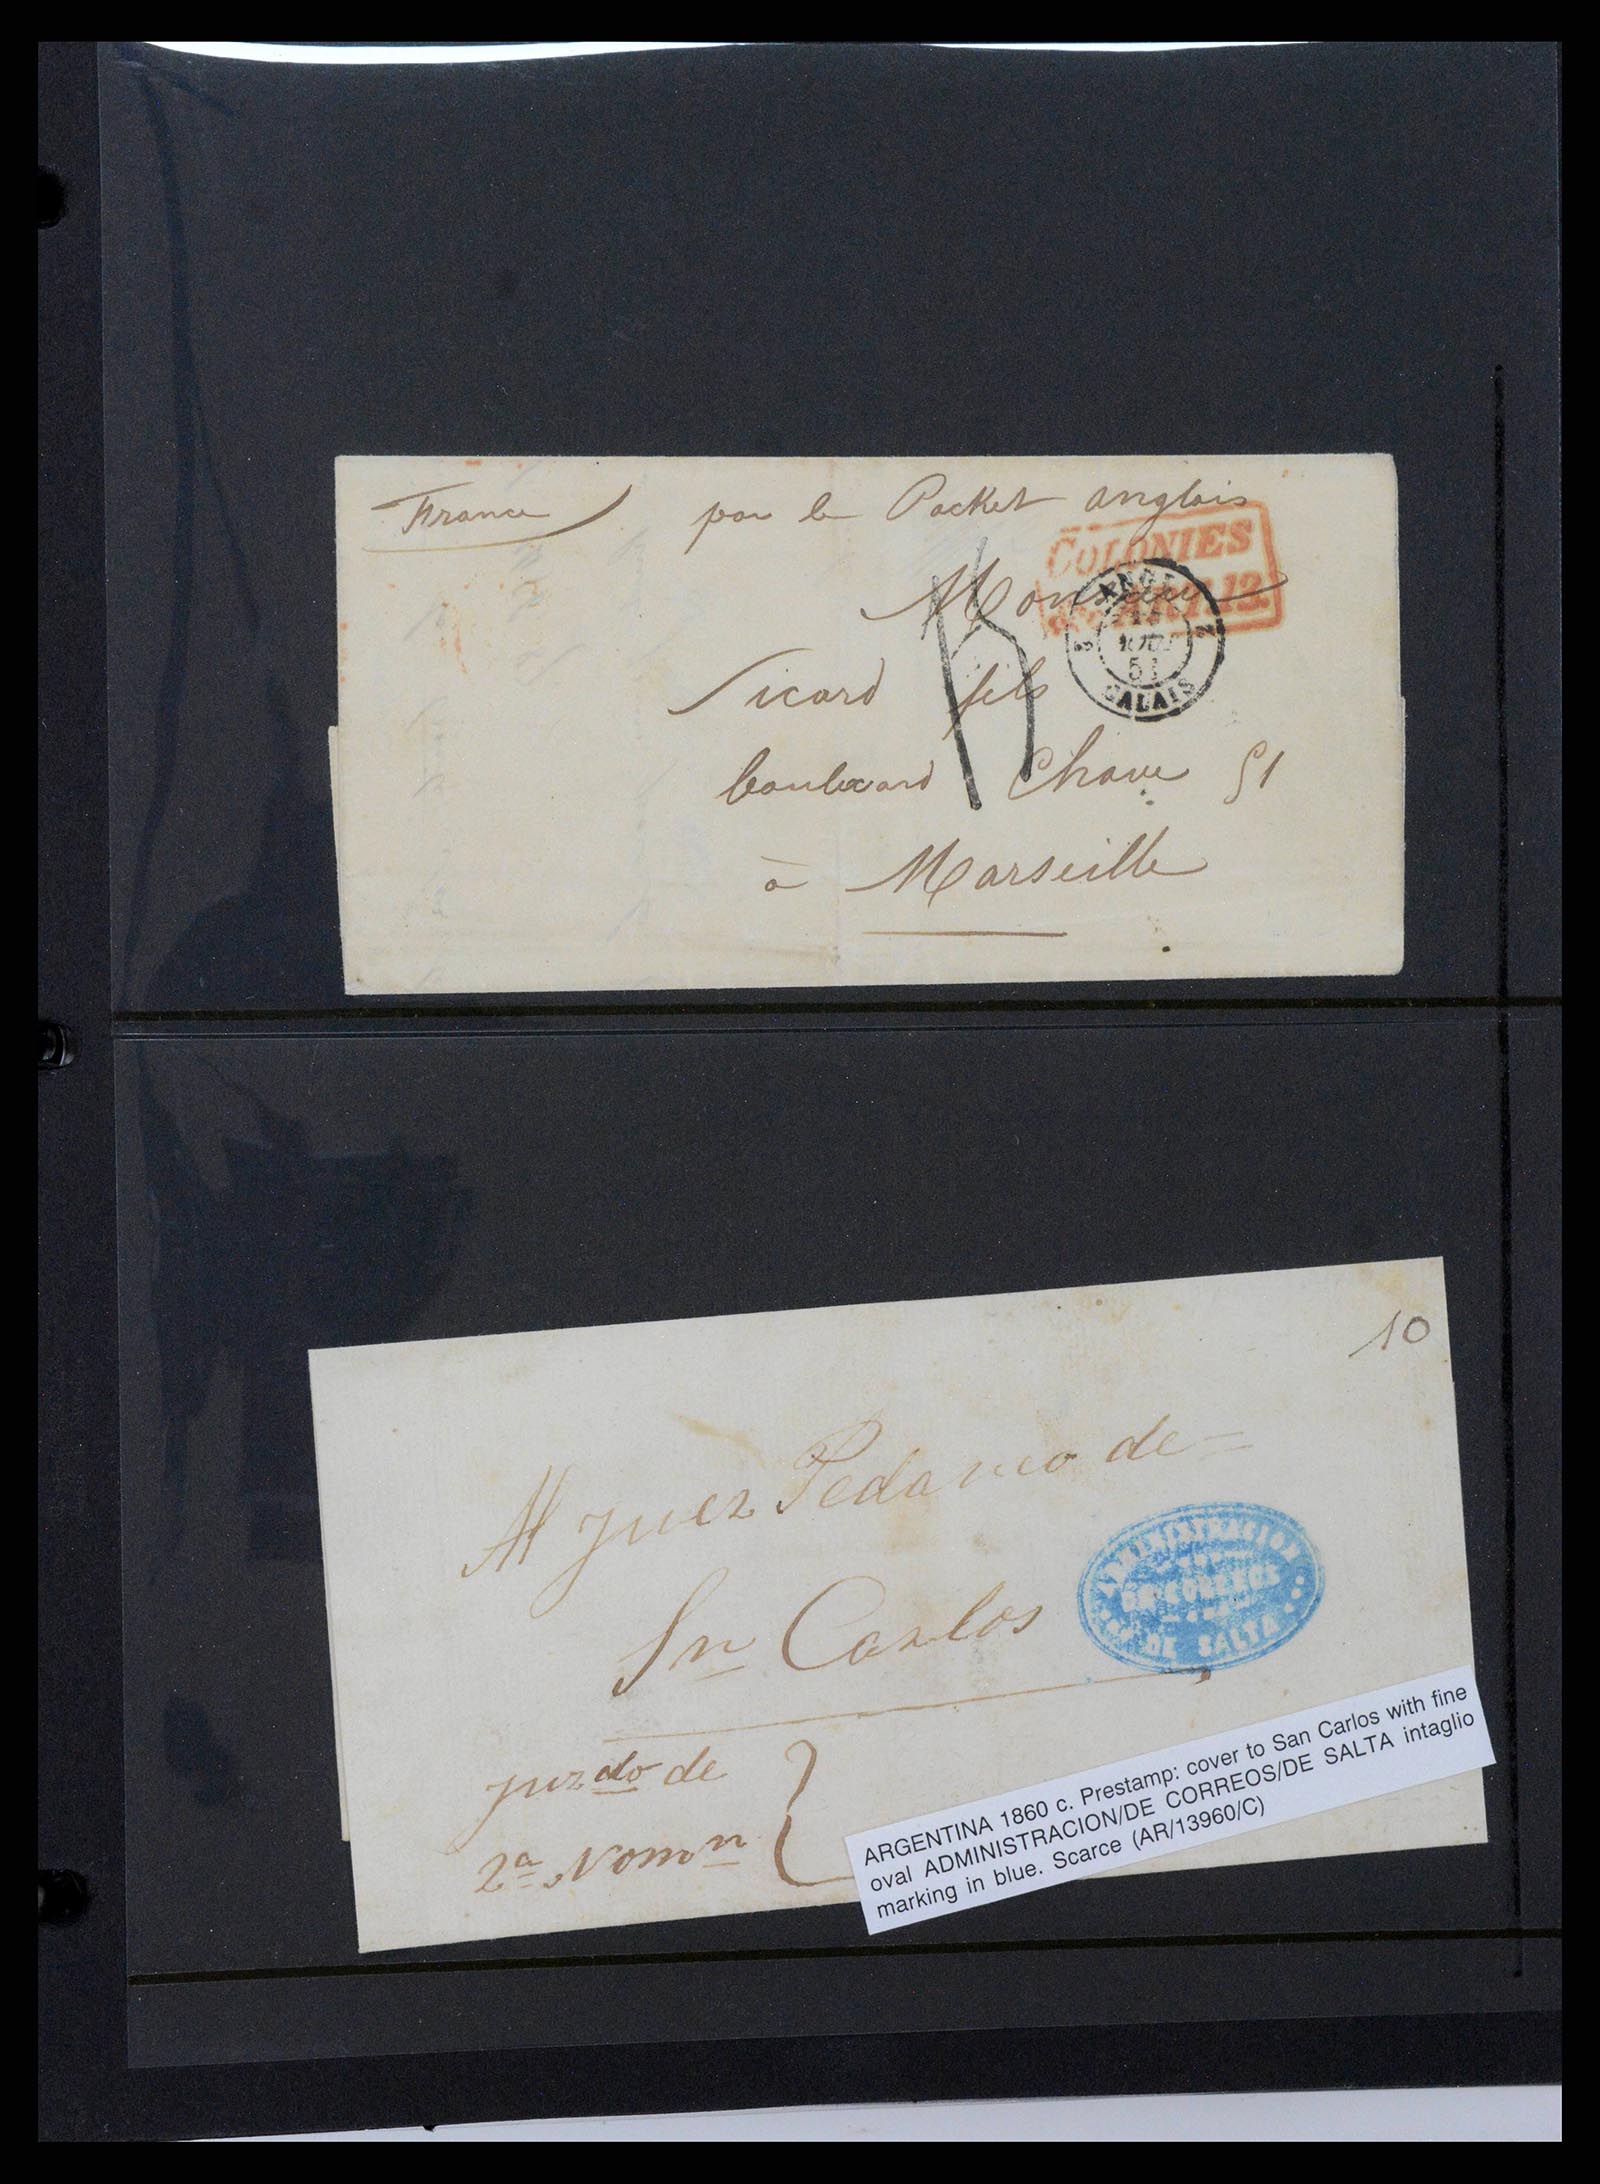 France par le Packet anglais
COLONIES
&c. ART. 12.
Monsieur
15
ANGL.
2 AOUT 2
51
CALAIS
Sicard fils
boulevard Chave 51
à Marseille
10
Al Juez Pedaneo de =
Sn Carlos
ADMINISTRACION
DE CORREOS
DE SALTA
Juzdo de
2a Nomn
ARGENTINA 1860 c. Prestamp: cover to San Carlos with fine
oval ADMINISTRACION/DE CORREOS/DE SALTA intaglio
marking in blue. Scarce (AR/13960/C)